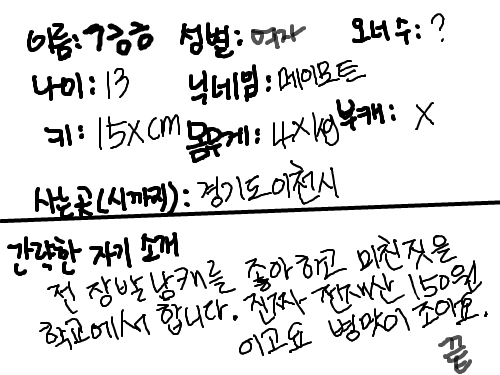 이름: ㄱ금응 성별: 여자 오너수: ?
나이: 13 닉네임: 메이모트
키: 15Xcm 몸무게: 4Xkg 부캐: X
사는곳(시까지): 경기도이천시
간략한 자기 소개
전 장발남캐를 좋아하고 미친짓을
학교에서 합니다. 진짜 전재산 150원
이고요 병맛이 조아요.
끝